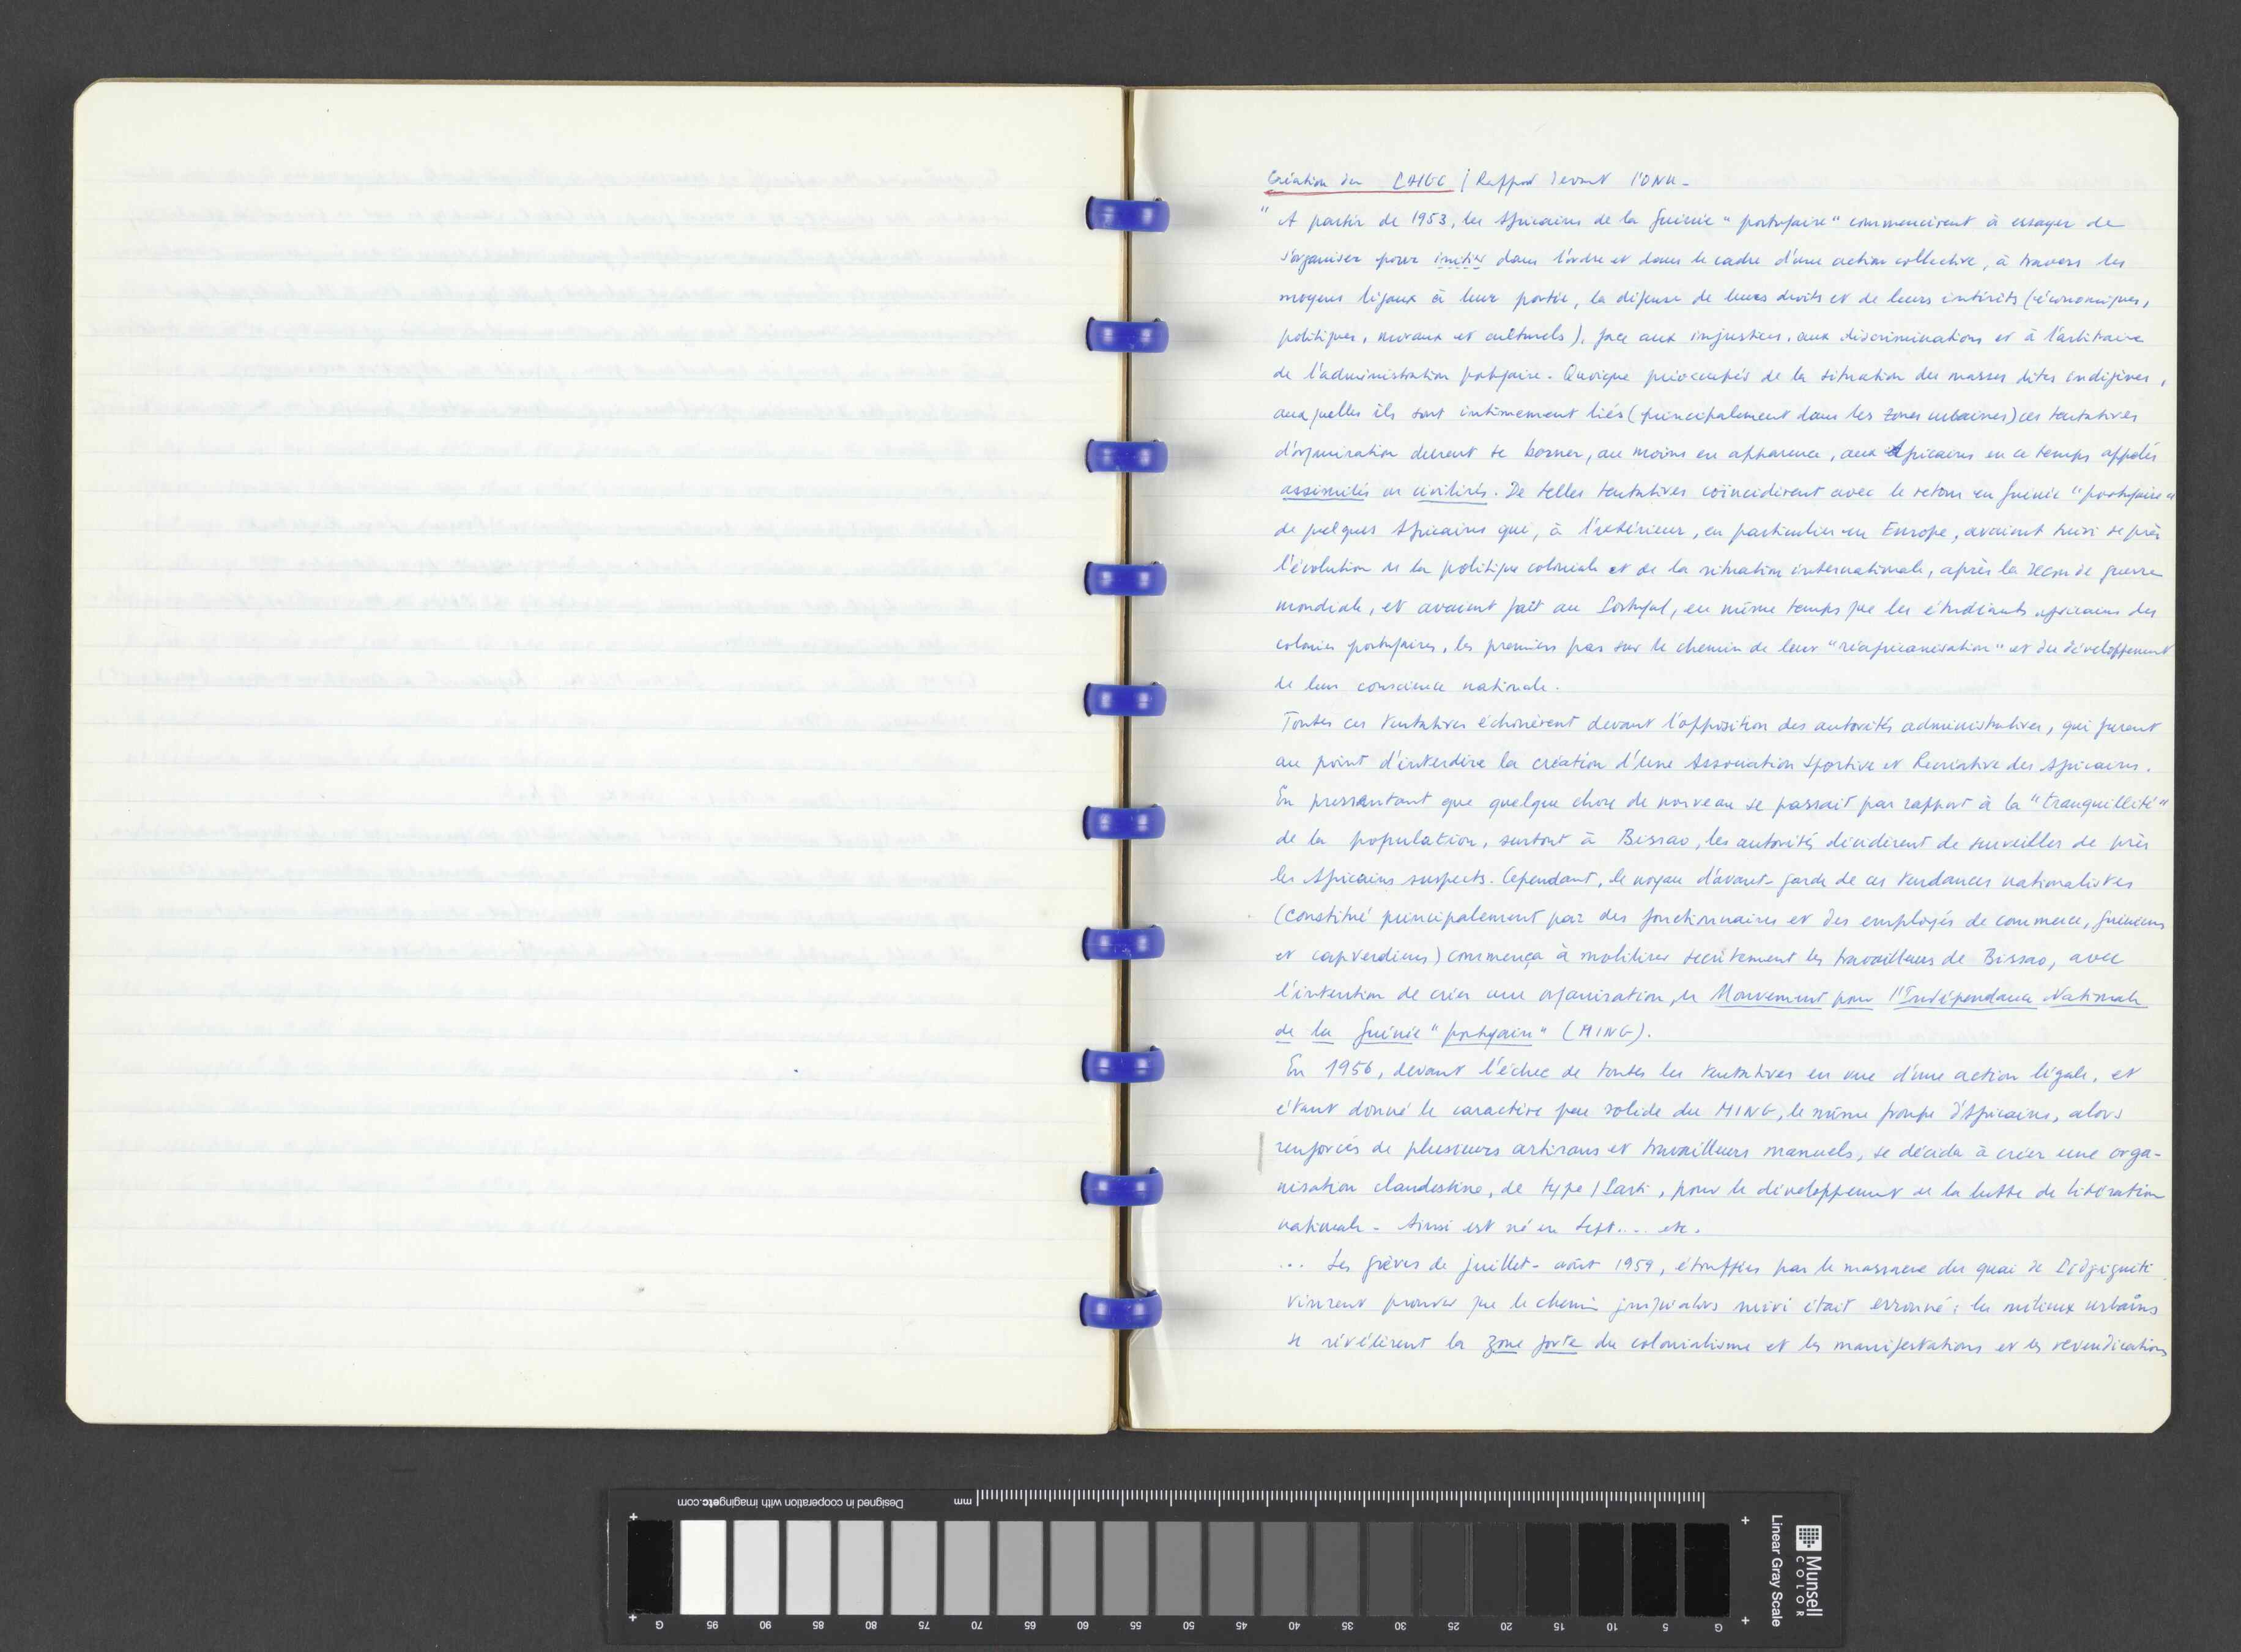 Création du PAIGC / Rapport devant l'ONU -
" A partir de 1953, les Africains de la Guinée " portugaise " commencèrent à essayer de
s'organiser pour initier dans l'ordre et dans le cadre d'une action collective, à travers les
moyens légaux à leur portée, la défense de leurs droits et de leurs intérêts (économiques,
politiques, moraux et culturels), face aux injustices, aux discriminations et à l'arbitraire
de l'administration portugaise. Quoique préoccupés de la situation des masses dites indigènes,
auxquelles ils sont intimement liés (principalement dans les zones urbaines) ces tentatives
d'organisation durent se borner, au moins en apparence, aux Africains en ce temps appelés
assimilés ou civilisés. De telles tentatives coïncidèrent avec le retour en Guinée "portugaise"
de quelques Africains qui, à l'extérieur, en particulier en Europe, avaient suivi de près
l'évolution de la politique coloniale et de la situation internationale, après la seconde guerre
mondiale, et avaient fait au Portugal, en même temps que les étudiants africains des
colonies portugaises, les premiers pas sur le chemin de leur "réafricanisation" et du développement
de leur conscience nationale.
Toutes ces tentatives échouèrent devant l'opposition des autorités administratives, qui furent
au point d'interdire la création d'une Association Sportive et Récréative des Africains.
En pressentant que quelque chose de nouveau se passait par rapport à la "tranquillité"
de la population, surtout à Bissao, les autorités décidèrent de surveiller de près
les Africains suspects. Cependant, le noyau d'avant-garde de ces tendances nationalistes
(constitué principalement par des fonctionnaires et des employés de commerce, guinéens
et capverdiens) commença à mobiliser secrètement les travailleurs de Bissao, avec
l'intention de créer une organisation, le Mouvement pour l'Indépendance Nationale
de la Guinée "portugaise" (MING).
En 1956, devant l'échec de toutes les tentatives en vue d'une action légale, et
étant donné le caractère peu solide du MING, le même groupe d'Africains, alors
renforcés de plusieurs artisans et travailleurs manuels, se décida à créer une orga-
nisation clandestine, de type / Parti, pour le développement de la lutte de libération
nationale - Ainsi est né en Sept.... etc.
... Les grèves de juillet-août 1959, étouffées par le massacre du quai de Pidgiguiti
vinrent prouver que le chemin jusqu'alors suivi était erronné: les milieux urbains
se révélèrent la zone forte du colonialisme et les manifestations et les revendications